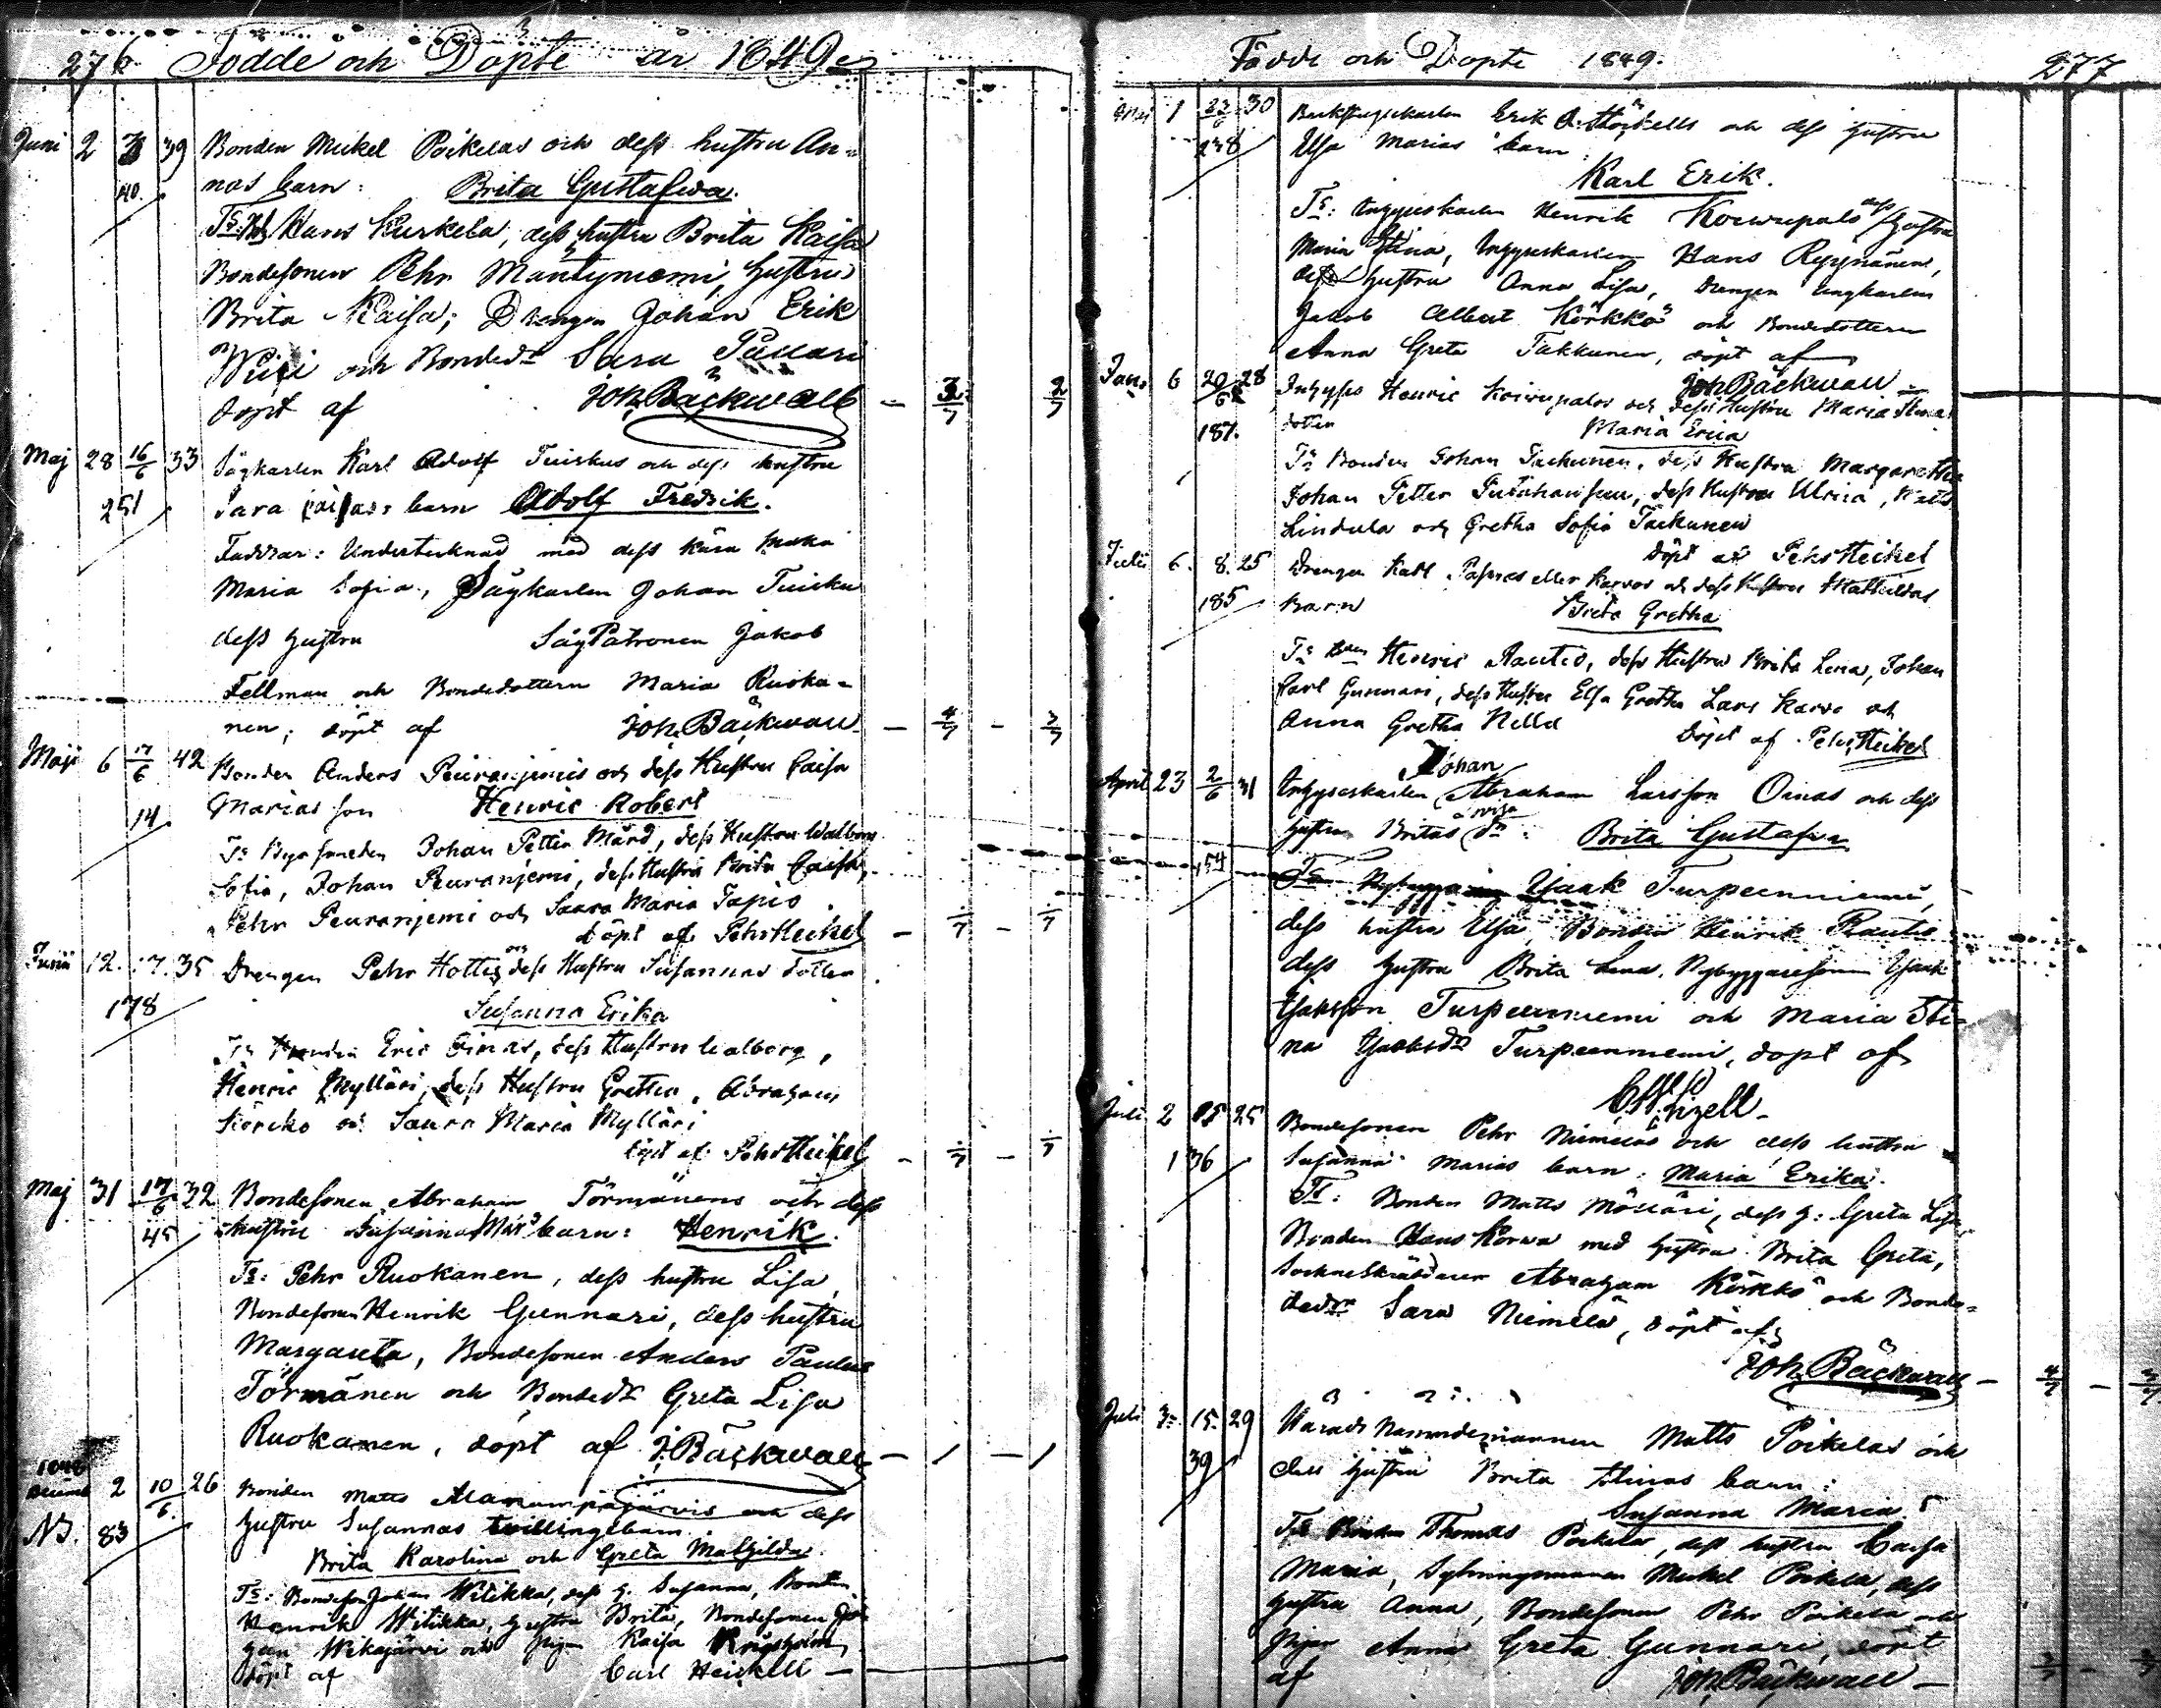 276 Födde och Döpte år 1849
Juni 2 39 Bonden Mickel Poikelas och dess hustru An=
40. nas barn: Brita Gustafwa.
Hans Kurkela, dess hustru Brita Kaisa
Bondesonen Pehr Mäntyniemi, hustru
Brita Kaisa; Drengen Johan Erik
och Bondedr Sara
döpt af Joh. Bäckwall
Maj 28 16/6 33 Sågkarlen Karl Adolf Tuiskus och dess hustru
251 Sara Caisas barn Adolf Fredrik.
Faddrar: Undertecknad med dess kära maka
Maria Sofia, Sågkarlen Johan Tuisku
dess hustru Såg Patronen Jakob
Fellman och Bondedottern Maria Ruoka-
nen; döpt af Joh. Bäckwall - 4/7 - 3/7
Maji 6 17/6 42 Bonden Anders Peuranjemis och dess Hustru Caisa
14. Marias son Henric Robert
Johan Petter Mård, dess Hustru Walborg
Sofia, Johan Peuranjemi, dess Hustru Brita Caisa,
Pehr Peuranjemi och Saara Maria Tapio
döpt af Pehr Heikel
Junii 12. 17. 35 Drengen Pehr Hottis och dess Hustru Susannas dotter
178 Susanna Erika
Ts Bonden Eric Oinas, dess Hustru Walborg,
Henric Mylläri, dess Hustru Gretha, Abraham
Körckö och Saara Maria Mylläri
döpt af Pehr Heikel
Maj 31 17/6 32 Bondesonen Abraham Törmänens och dess
45 hustru Susanna Mar. barn: Henrik.
Ts: Pehr Ruokanen, dess hustru Lisa,
Bondesonen Henrik Gunnari, dess hustru
Margareta, Bondesonen Anders Paulus
Törmänen och Bondedr Greta Lisa
Ruokanen, döpt af J. Bäckwall - 1 - 1
1848
Decemb 2 10/6. 26 Bonden Matts och dess
N. 83 hustru Susannas tvillingebarn
Brita Karolina och Greta Mathilda.
Ts: Bondeson Johan Witikka, dess h. Susanna, Bonden
Henrik Witikka, hustru Brita, Bondesonen Jo-
han Wikajärvi och Pigan Kaisa
döpt af Carl Heickell -
Födde och Döpte 1849. 277
1 30 Erik A. och dess hustru
238 Elsa Marias barn:
Karl Erik.
Ts: Inhyseskarlen Henrik Koiwupalo dess hustru
Maria Stina, Inhyseskarlen Hans Ryynänen,
dess hustru Anna Lisa, Drengen ungkarlen
Jakob Albert Körkkö och Bondedottern
Anna Greta Takkunen, döpt af
Joh. Bäckwall -
Jan. 6 28 Inhyses Henric Koiwupalos och dess Hustru Maria Stinas
187. dotter Maria Erica
Ts Bonden Johan Tackunen, dess Hustru Margaretha
Johan Petter dess Hustru Ulrica, Matts
Lindula och Gretha Sofia Tackunen
döpt af Pehr Heikel
Julii 6. 8. 25 Drengen Karl eller Karvos och dess Hustru Mathildas
185 barn Brita Gretha
Ts Henric Rautio, dess Hustru Brita Lena, Johan
Carl Gunnari, dess Hustru Elsa Gretha Lars Karvo och
Anna Gretha Nella döpt af Pehr Heikel
Johan
April 23 2/6 31 Inhyseskarlen Abraham Larsson Oinas och dess
hustru Britas dr: Brita Gustafwa
54
Isaak Turpeenniemi,
dess hustru Elsa, Bonden Henrik Rautio
dess hustru Brita Lena, Nybyggaresonen Isaak
Isaksson Turpeenniemi och Maria Sti-
na Isaksdr Turpeenniemi, döpt af
Lizell -
Juli 2 15 25 Bondesonen Pehr Niemeläs och dess hustru
136 Susanna Marias barn: Maria Erika.
Ts: Bonden Matts Mölläri, dess h: Greta Lisa,
Bonden Hans Korwa med hustru Brita Greta,
Sockneskräddaren Abraham Körkkö och Bonde-
dotr Sara Niemelä, döpt af
Joh. Bäckwall - 4/7 -
Juli 3. 15. 29 Härads Nämndemannen Matts Poikelas och
39 dess hustru Brita Stinas barn:
Susanna Maria.
Ts Bonden Thomas Poikela, dess hustru Caisa
Maria, Mickel Poikela, dess
hustru Anna, Bondesonen Pehr Poikela och
Pigan Anna Greta Gunnari, döpt
af Joh. Bäckwall -